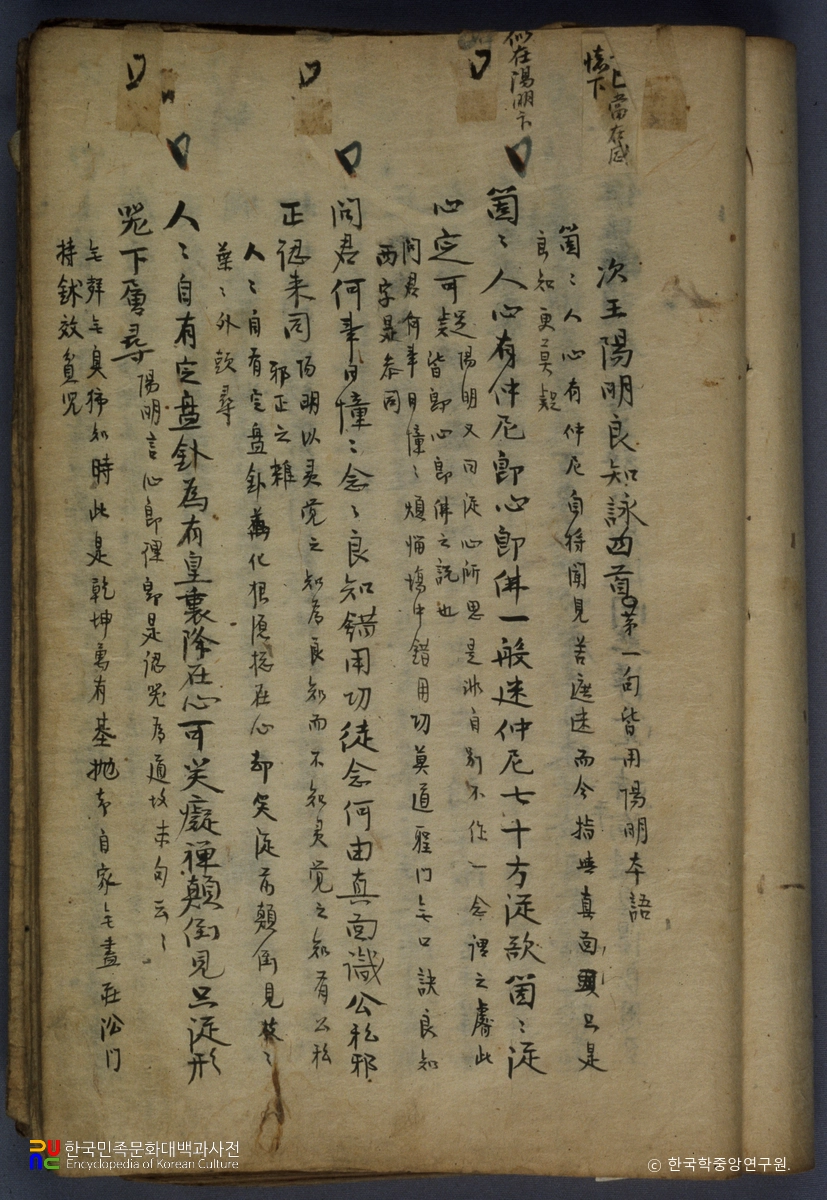 似在陽明下
上當在感
次王陽明良知詠四首 第一句皆用陽明本語
箇〻人心有仲尼自將聞見苦遮迷而今指與真面頭只是
良知更莫疑
箇〻人心有仲尼卽心卽佛一般迷仲尼七十方從欲箇〻從
心定可疑 陽明又曰從心所思是非自別不作一念謂之此
皆卽心卽佛之說也
問君何事日憧〻煩惱場中錯用功莫道聖門無口訣良知
兩字是參同
問君何事日憧〻念〻良知錯用功徒念何由真面識公私邪
正總来同 陽明以灵覚之知為良知而不知灵覚之知有公私
邪正之雜
人〻自有定盤針萬化根源捴在心却笑從前顛倒見枝〻
葉〻外頭尋
人〻自有定盤針為有皇衷降在心可笑癡禪顛倒見只從形
氣下層尋 陽明言心卽理卽是認氣為道故末句云〻
無聲無臭獨知時此是乾坤萬有基抛却自家無盡莊沿門
持鉢效貧児
한국민족문화대백과사전
Encyclopedia of Korean Culture
© 한국학중앙연구원.